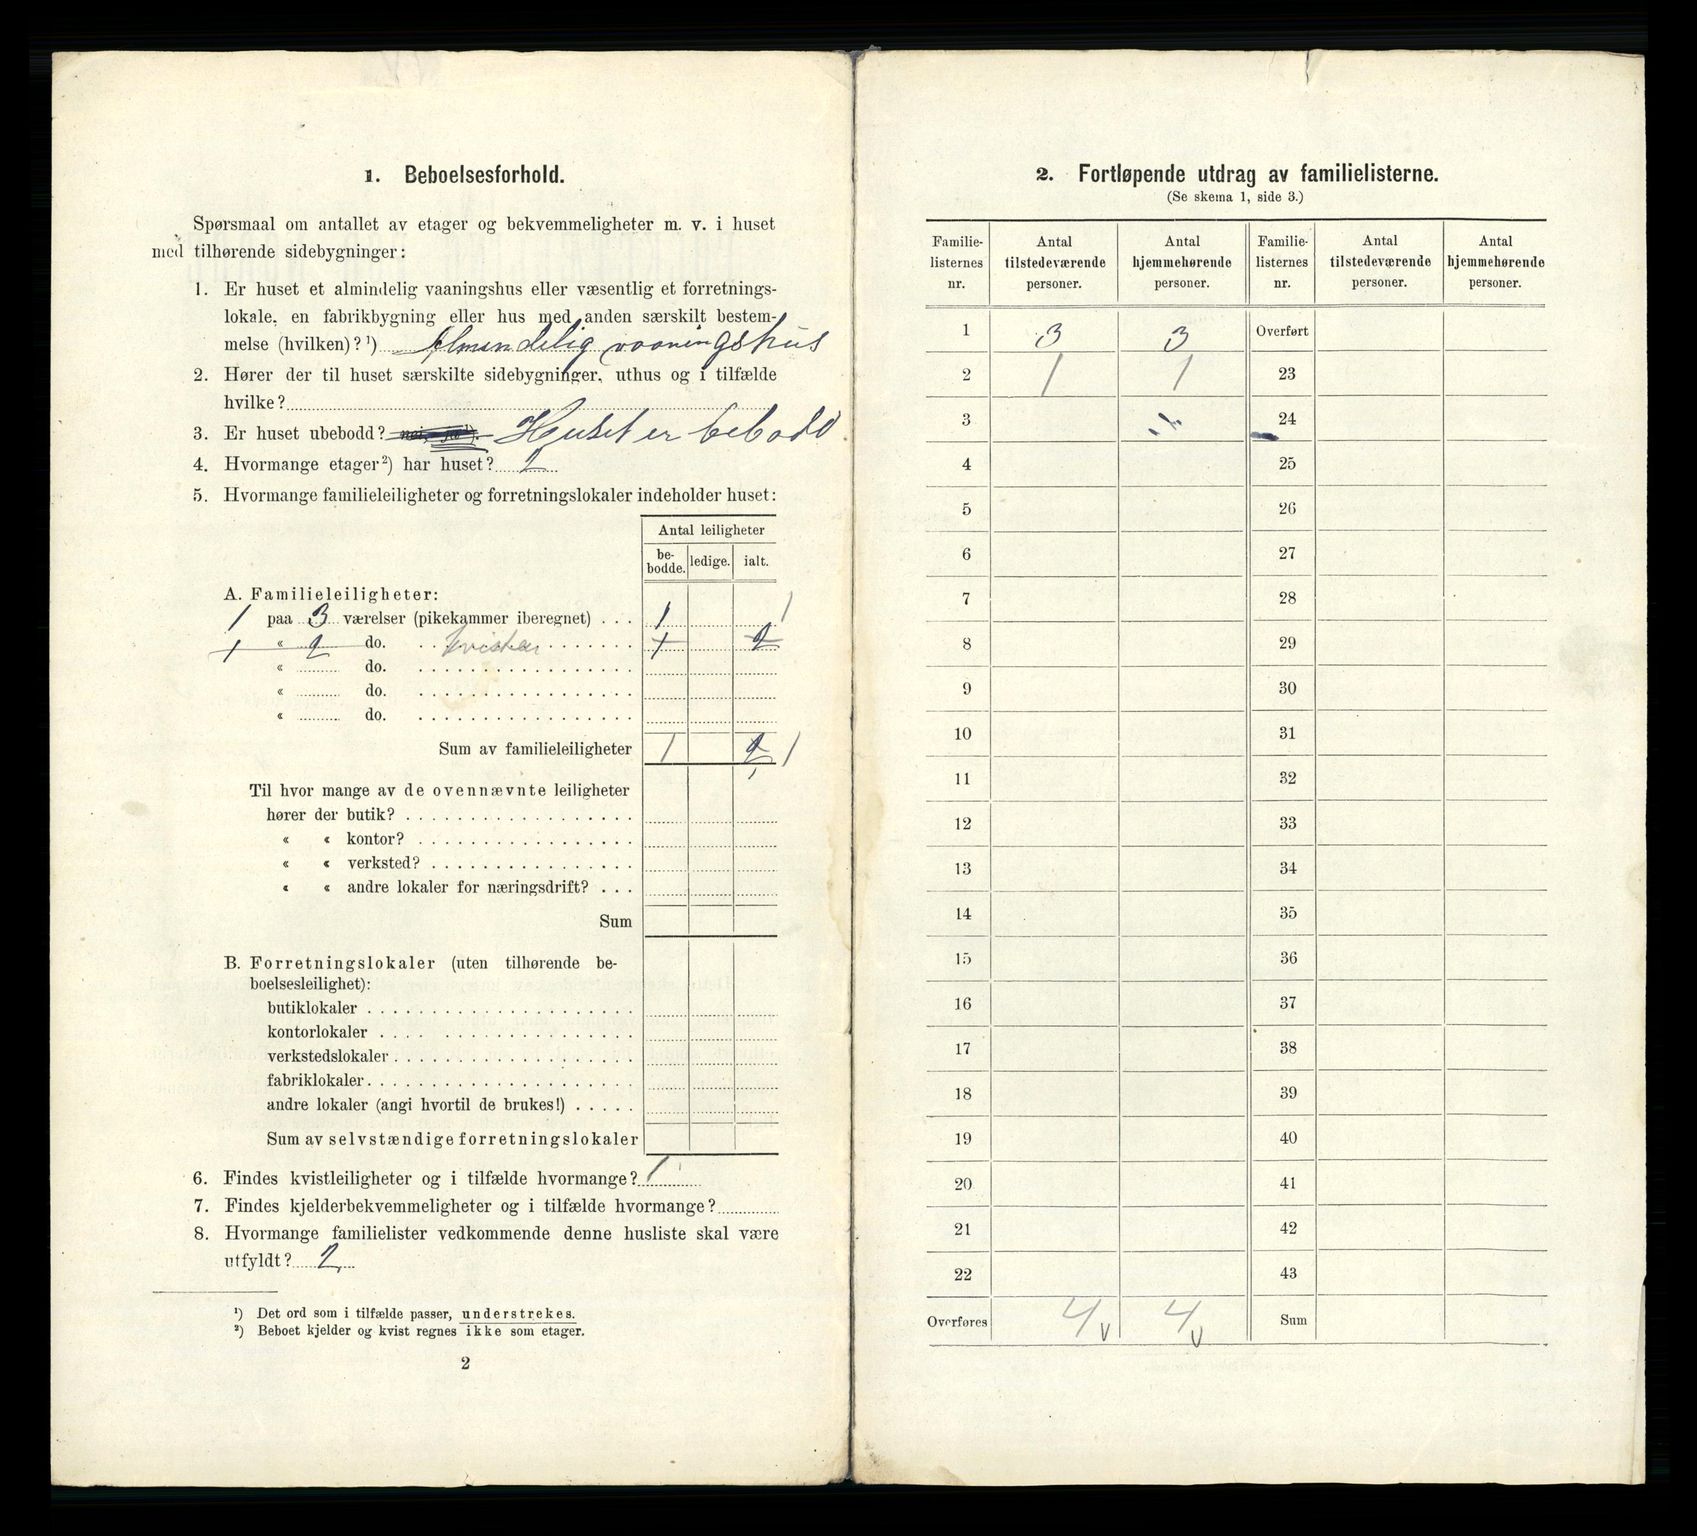 1. Beboelsesforhold.
Spørsmaal om antallet av etager og bekvemmeligheter m. v. i huset
med tilhørende sidebygninger:
1. Er huset et almindelig vaaningshus eller væsentlig et forretnings-
lokale, en fabrikbygning eller hus med anden særskilt bestem-
melse (hvilken)?¹) Almindelig vaaningshus
2. Hører der til huset særskilte sidebygninger, uthus og i tilfælde
hvilke?
3. Er huset ubebodd? Huset er bebodd
4. Hvormange etager²) har huset? 2
5. Hvormange familieleiligheter og forretningslokaler indeholder huset:
Antal leiligheter
be-
bodde. ledige. ialt.
A. Familieleiligheter:
1 paa 3 værelser (pikekammer iberegnet) . . . 1 1
1 « 2 do. . . kvister . . . . . . 1 2
« do. . . . . . . . . . . . . . . . . .
« do. . . . . . . . . . . . . . . . . .
« do. . . . . . . . . . . . . . . . . .
Sum av familieleiligheter 1 2 1
Til hvor mange av de ovennævnte leiligheter
hører der butik? . . . . . . . . . . . . . . . . . .
« « kontor? . . . . . . . . . . . . . . . . .
« « verksted? . . . . . . . . . . . . . . . .
« « andre lokaler for næringsdrift? . . .
Sum
B. Forretningslokaler (uten tilhørende be-
boelsesleilighet):
butiklokaler . . . . . . . . . . . . . . . . . . . . .
kontorlokaler . . . . . . . . . . . . . . . . . . . .
verkstedslokaler . . . . . . . . . . . . . . . . . . .
fabriklokaler . . . . . . . . . . . . . . . . . . . . .
andre lokaler (angi hvortil de brukes!) . . . . .
Sum av selvstændige forretningslokaler
6. Findes kvistleiligheter og i tilfælde hvormange? 1
7. Findes kjelderbekvemmeligheter og i tilfælde hvormange?
8. Hvormange familielister vedkommende denne husliste skal være
utfyldt? 2
¹) Det ord som i tilfælde passer, understrekes.
²) Beboet kjelder og kvist regnes ikke som etager.
2
2. Fortløpende utdrag av familielisterne.
(Se skema 1, side 3.)
Familie- Antal Antal Familie- Antal Antal
listernes tilstedeværende hjemmehørende listernes tilstedeværende hjemmehørende
nr. personer. personer. nr. personer. personer.
1 3 3 Overført
2 1 1 23
3 24
4 25
5 26
6 27
7 28
8 29
9 30
10 31
11 32
12 33
13 34
14 35
15 36
16 37
17 38
18 39
19 40
20 41
21 42
22 43
Overføres 4 v 4 v Sum